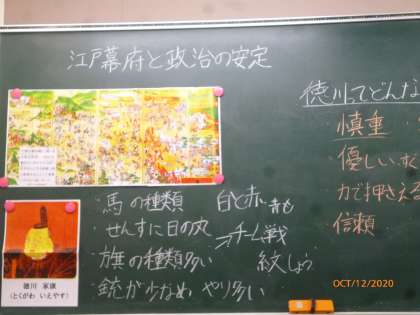 江戸幕府と政治の安定
・馬の種類 白と赤
・せんすに日の丸
・旗の種類多い
チーム戦
紋しょう
・銃が少なめ やり多い
徳川 家康
(とくがわ いえやす)
徳川ってどんな
慎重
優しい
力で押さえ
信頼
OCT/12/2020